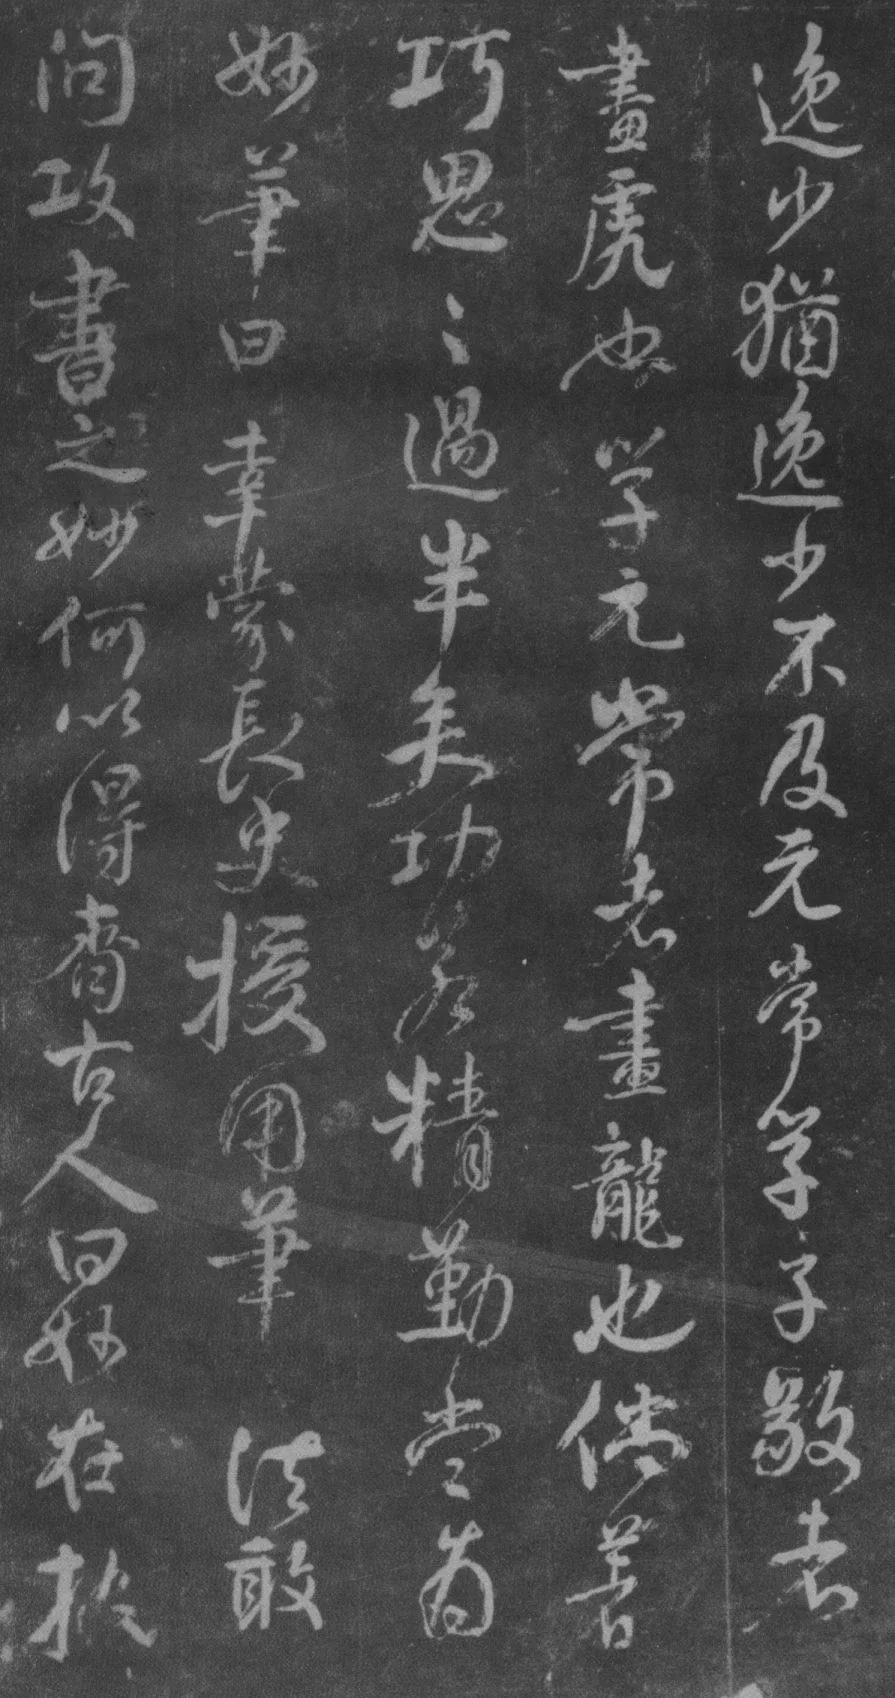 逸少猶逸少不及元常學子敬者
畫虎也學元常者畫龍也倘善
巧思〻過半矣功若精勤當為
妙筆曰幸蒙長史授用筆法敢
問攻書之妙何以得齊古人曰妙在執